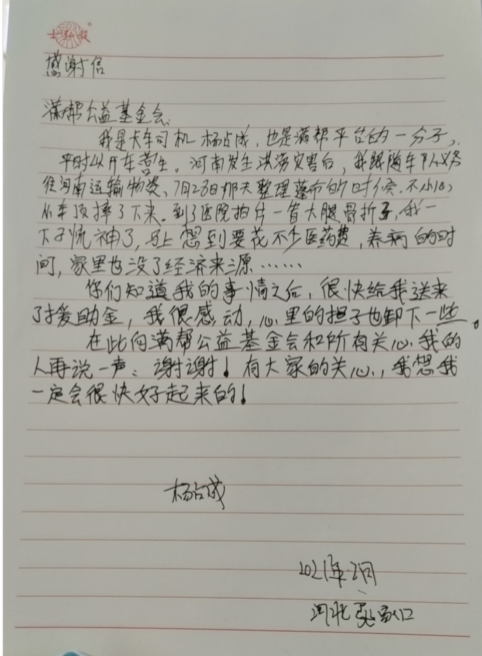 感谢信
满帮公益基金会
我是卡车司机杨占成，也是满帮平台的一分子，
平时以开车营生。河南发生洪涝灾害后，我跟随车队义务
往河南运输物资，7月23日那天整理篷布的时候，不小心
从车顶摔了下来，到了医院拍片一看大腿骨折了，我一
下子慌神了，马上想到要花不少医药费，养病的时
间，家里也没了经济来源……
你们知道我的事情之后，很快给我送来
了援助金，我很感动，心里的担子也卸下一些。
在此向满帮公益基金会和所有关心我的
人再说一声：谢谢！有大家的关心，我想我
一定会很快好起来的！
杨占成
2021年2月
河北 家口